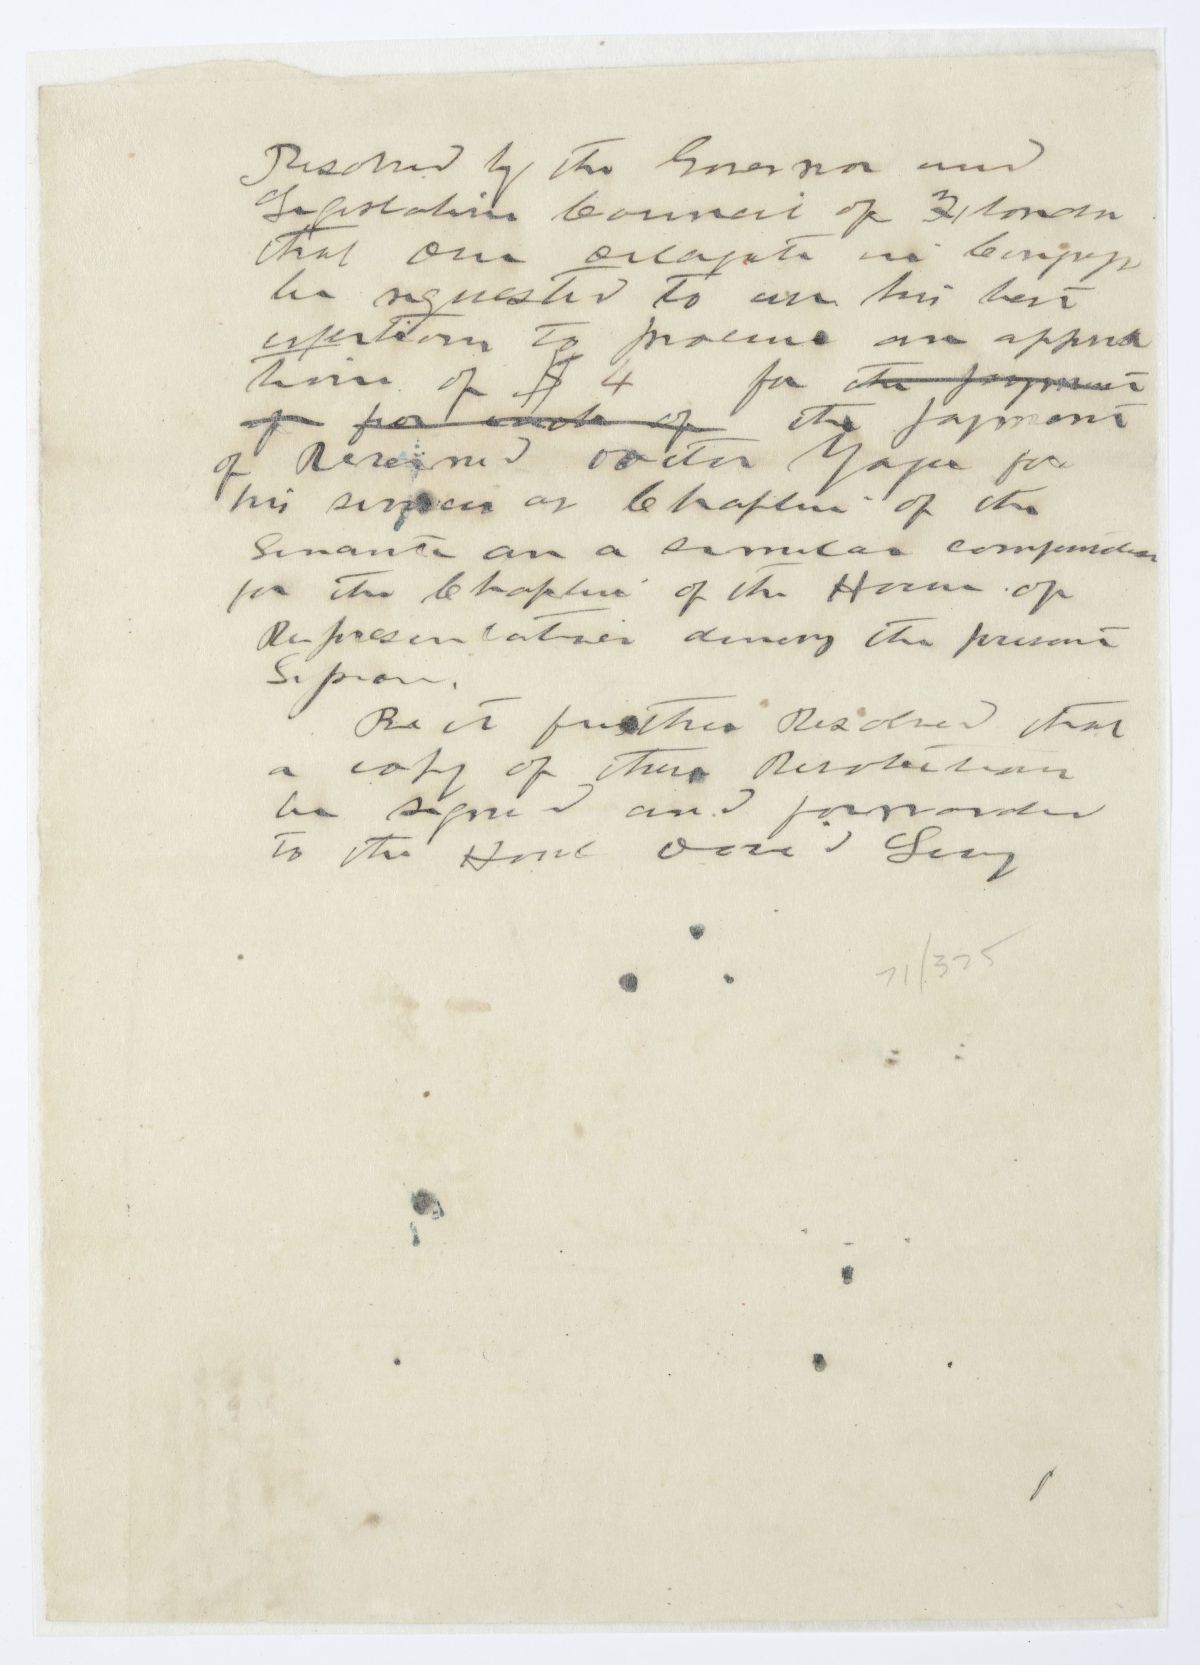 Resolved by the Governor and
Legislative Council of Florida
that our delegate in Congress
be requested to use his best
exertions to procure an appro
tion of $4 for the payment
of for each of the payment
of Reverend Doctor Yager for
his services as Chaplin of the
Senante an a similar compensation
for the Chaplin of the House of
Representatives during the present
Session.
Be it further Resolved that
a copy of these Resolutions
be signed and forwarded
to the Honl David Levy
71/375